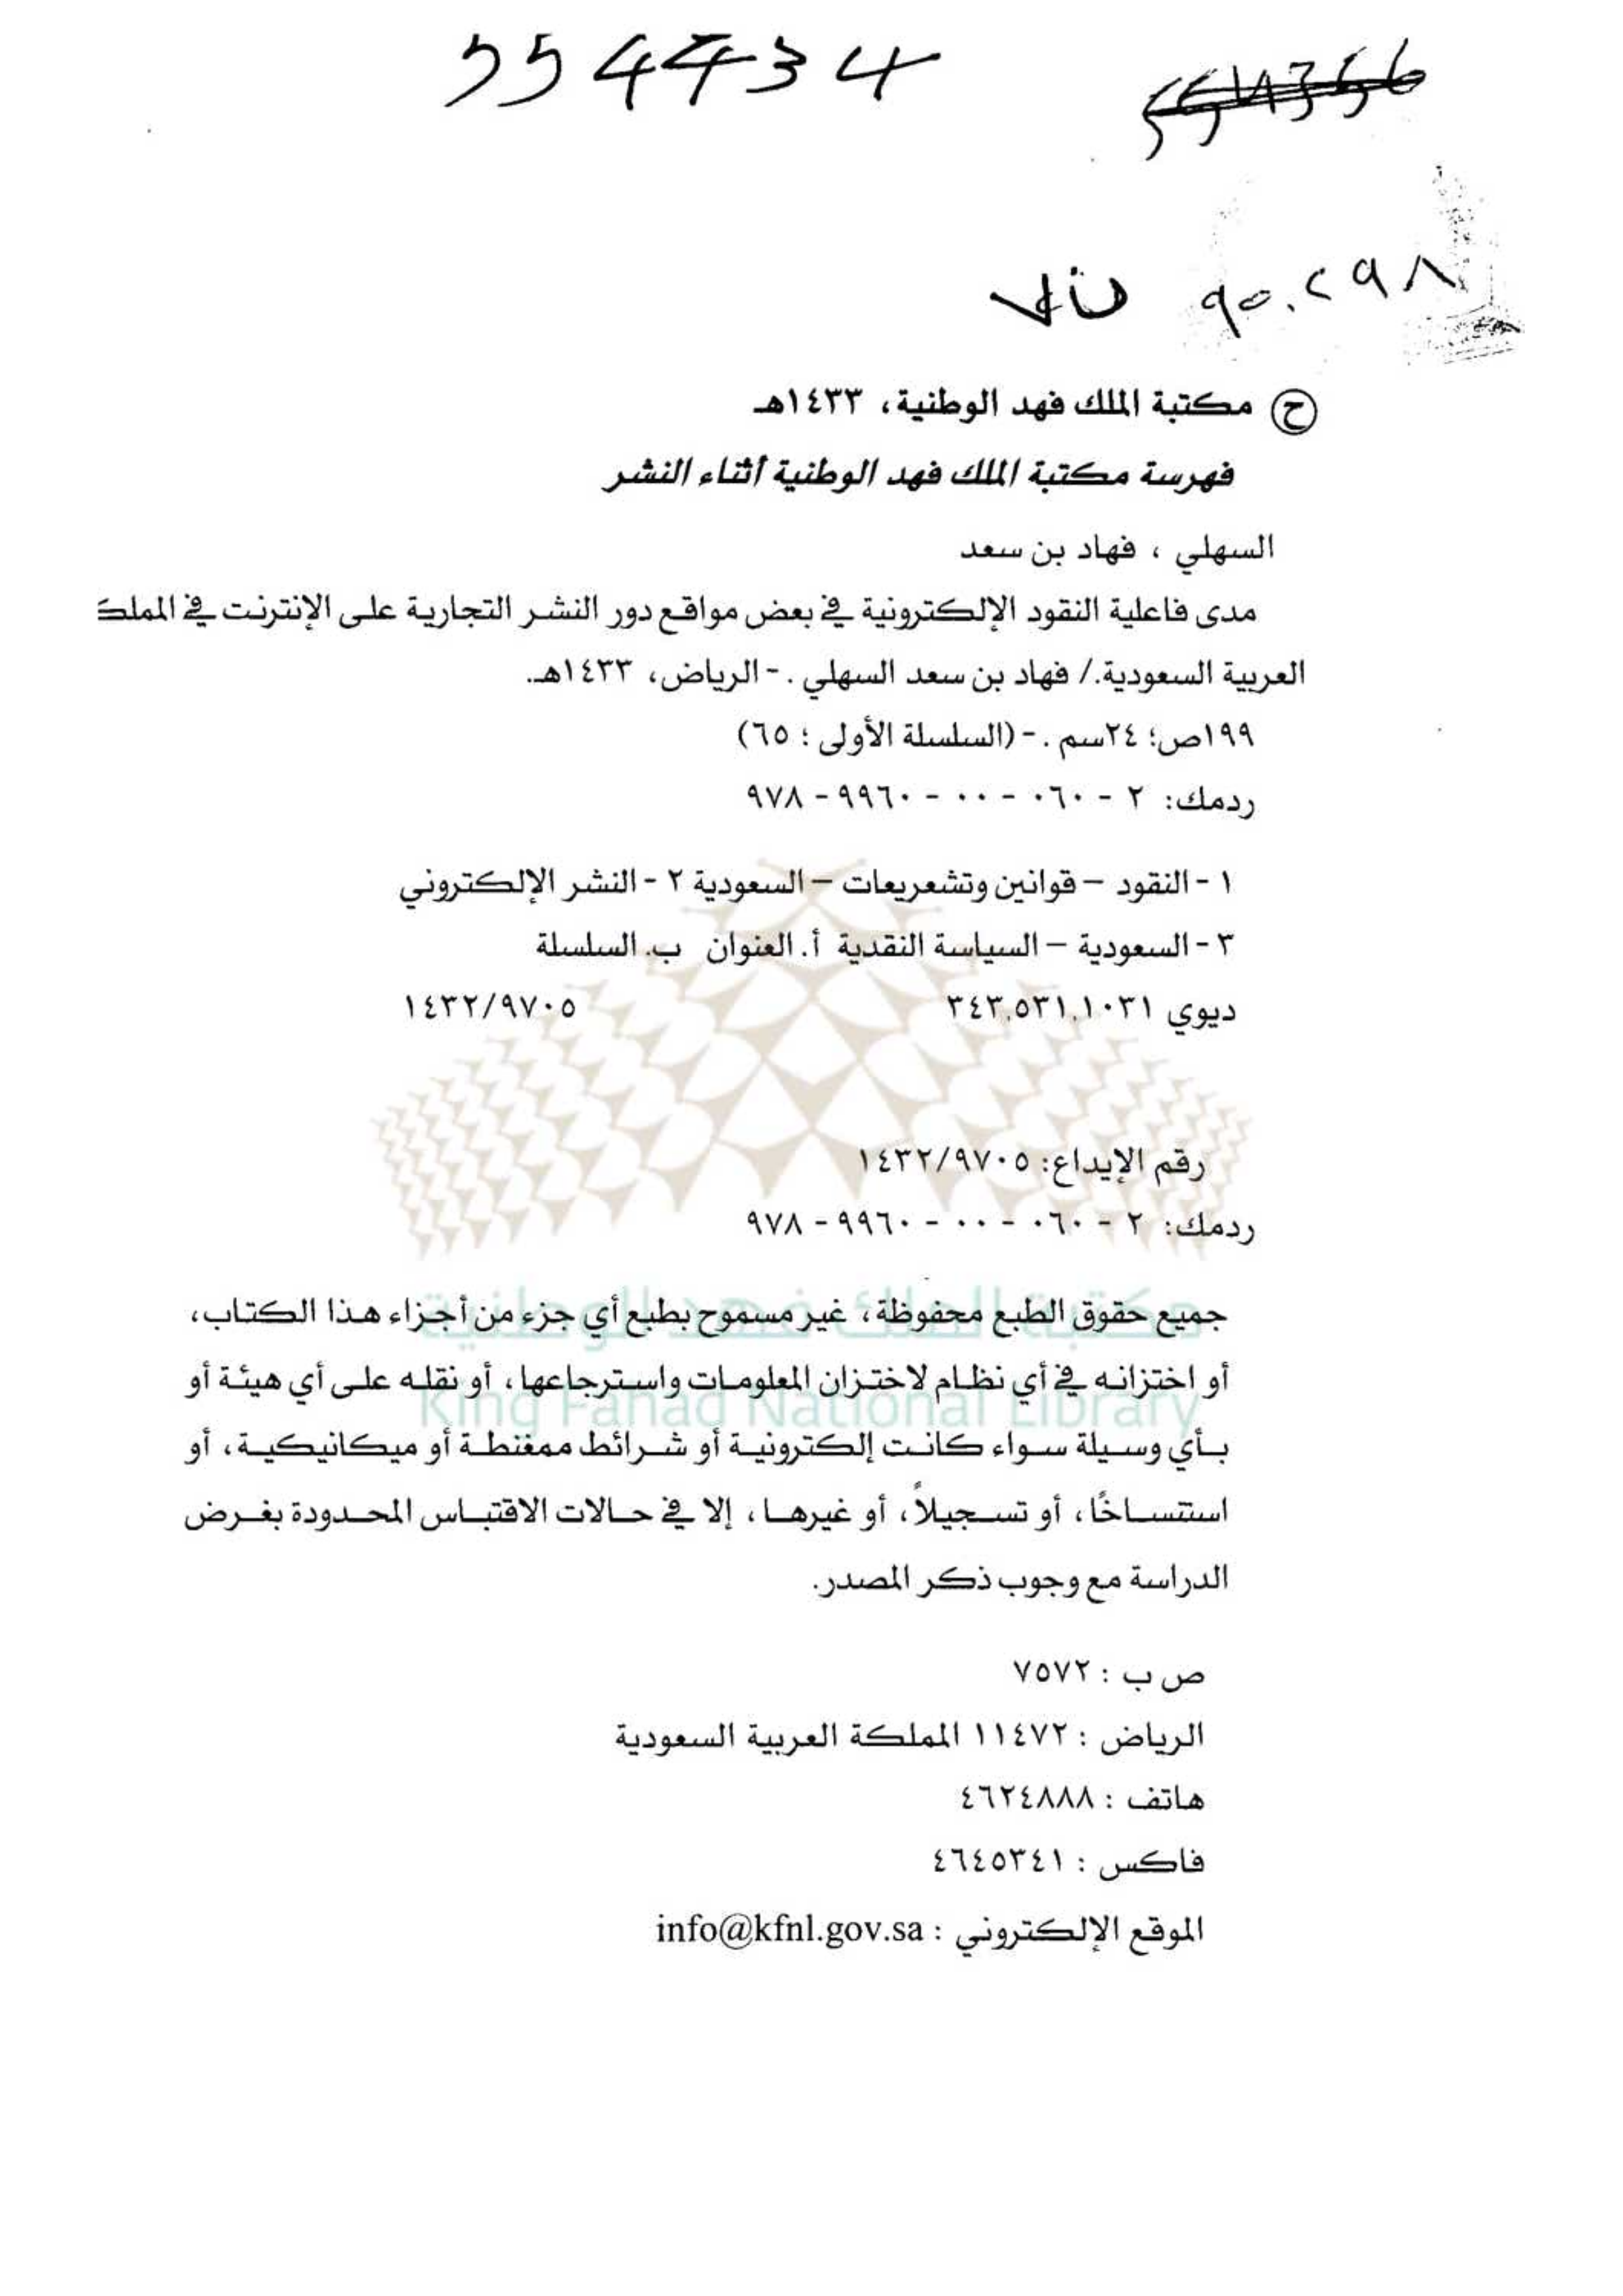 554434
ح مكتبة الملك فهد الوطنية، ١٤٣٣هـ
فهرسة مكتبة الملك فهد الوطنية أثناء النشر
السهلي ، فهاد بن سعد
مدى فاعلية النقود الإلكترونية في بعض مواقع دور النشر التجارية على الإنترنت في المملك
العربية السعودية./ فهاد بن سعد السهلي .- الرياض، ١٤٣٣هـ.
١٩٩ص؛ ٢٤سم .- (السلسلة الأولى ؛ ٦٥)
ردمك: ٢ - ٠٦٠ - ٠٠ - ٩٩٦٠ - ٩٧٨
١ - النقود – قوانين وتشعريعات – السعودية ٢ - النشر الإلكتروني
٣ - السعودية – السياسة النقدية أ. العنوان ب. السلسلة
ديوي ٣٤٣,٥٣١,١٠٣١ ١٤٣٢/٩٧٠٥
رقم الإيداع: ١٤٣٢/٩٧٠٥
ردمك: ٢ - ٠٦٠ - ٠٠ - ٩٩٦٠ - ٩٧٨
مكتبة الملك فهد الوطنية
جميع حقوق الطبع محفوظة، غير مسموح بطبع أي جزء من أجزاء هذا الكتاب،
أو اختزانه في أي نظام لاختزان المعلومات واسترجاعها، أو نقله على أي هيئة أو
King Fahad National Library
بأي وسيلة سواء كانت إلكترونية أو شرائط ممغنطة أو ميكانيكية، أو
استنساخًا، أو تسجيلاً، أو غيرها، إلا في حالات الاقتباس المحدودة بغرض
الدراسة مع وجوب ذكر المصدر.
ص ب : ٧٥٧٢
الرياض : ١١٤٧٢ المملكة العربية السعودية
هاتف : ٤٦٢٤٨٨٨
فاكس : ٤٦٤٥٣٤١
الموقع الإلكتروني : info@kfnl.gov.sa